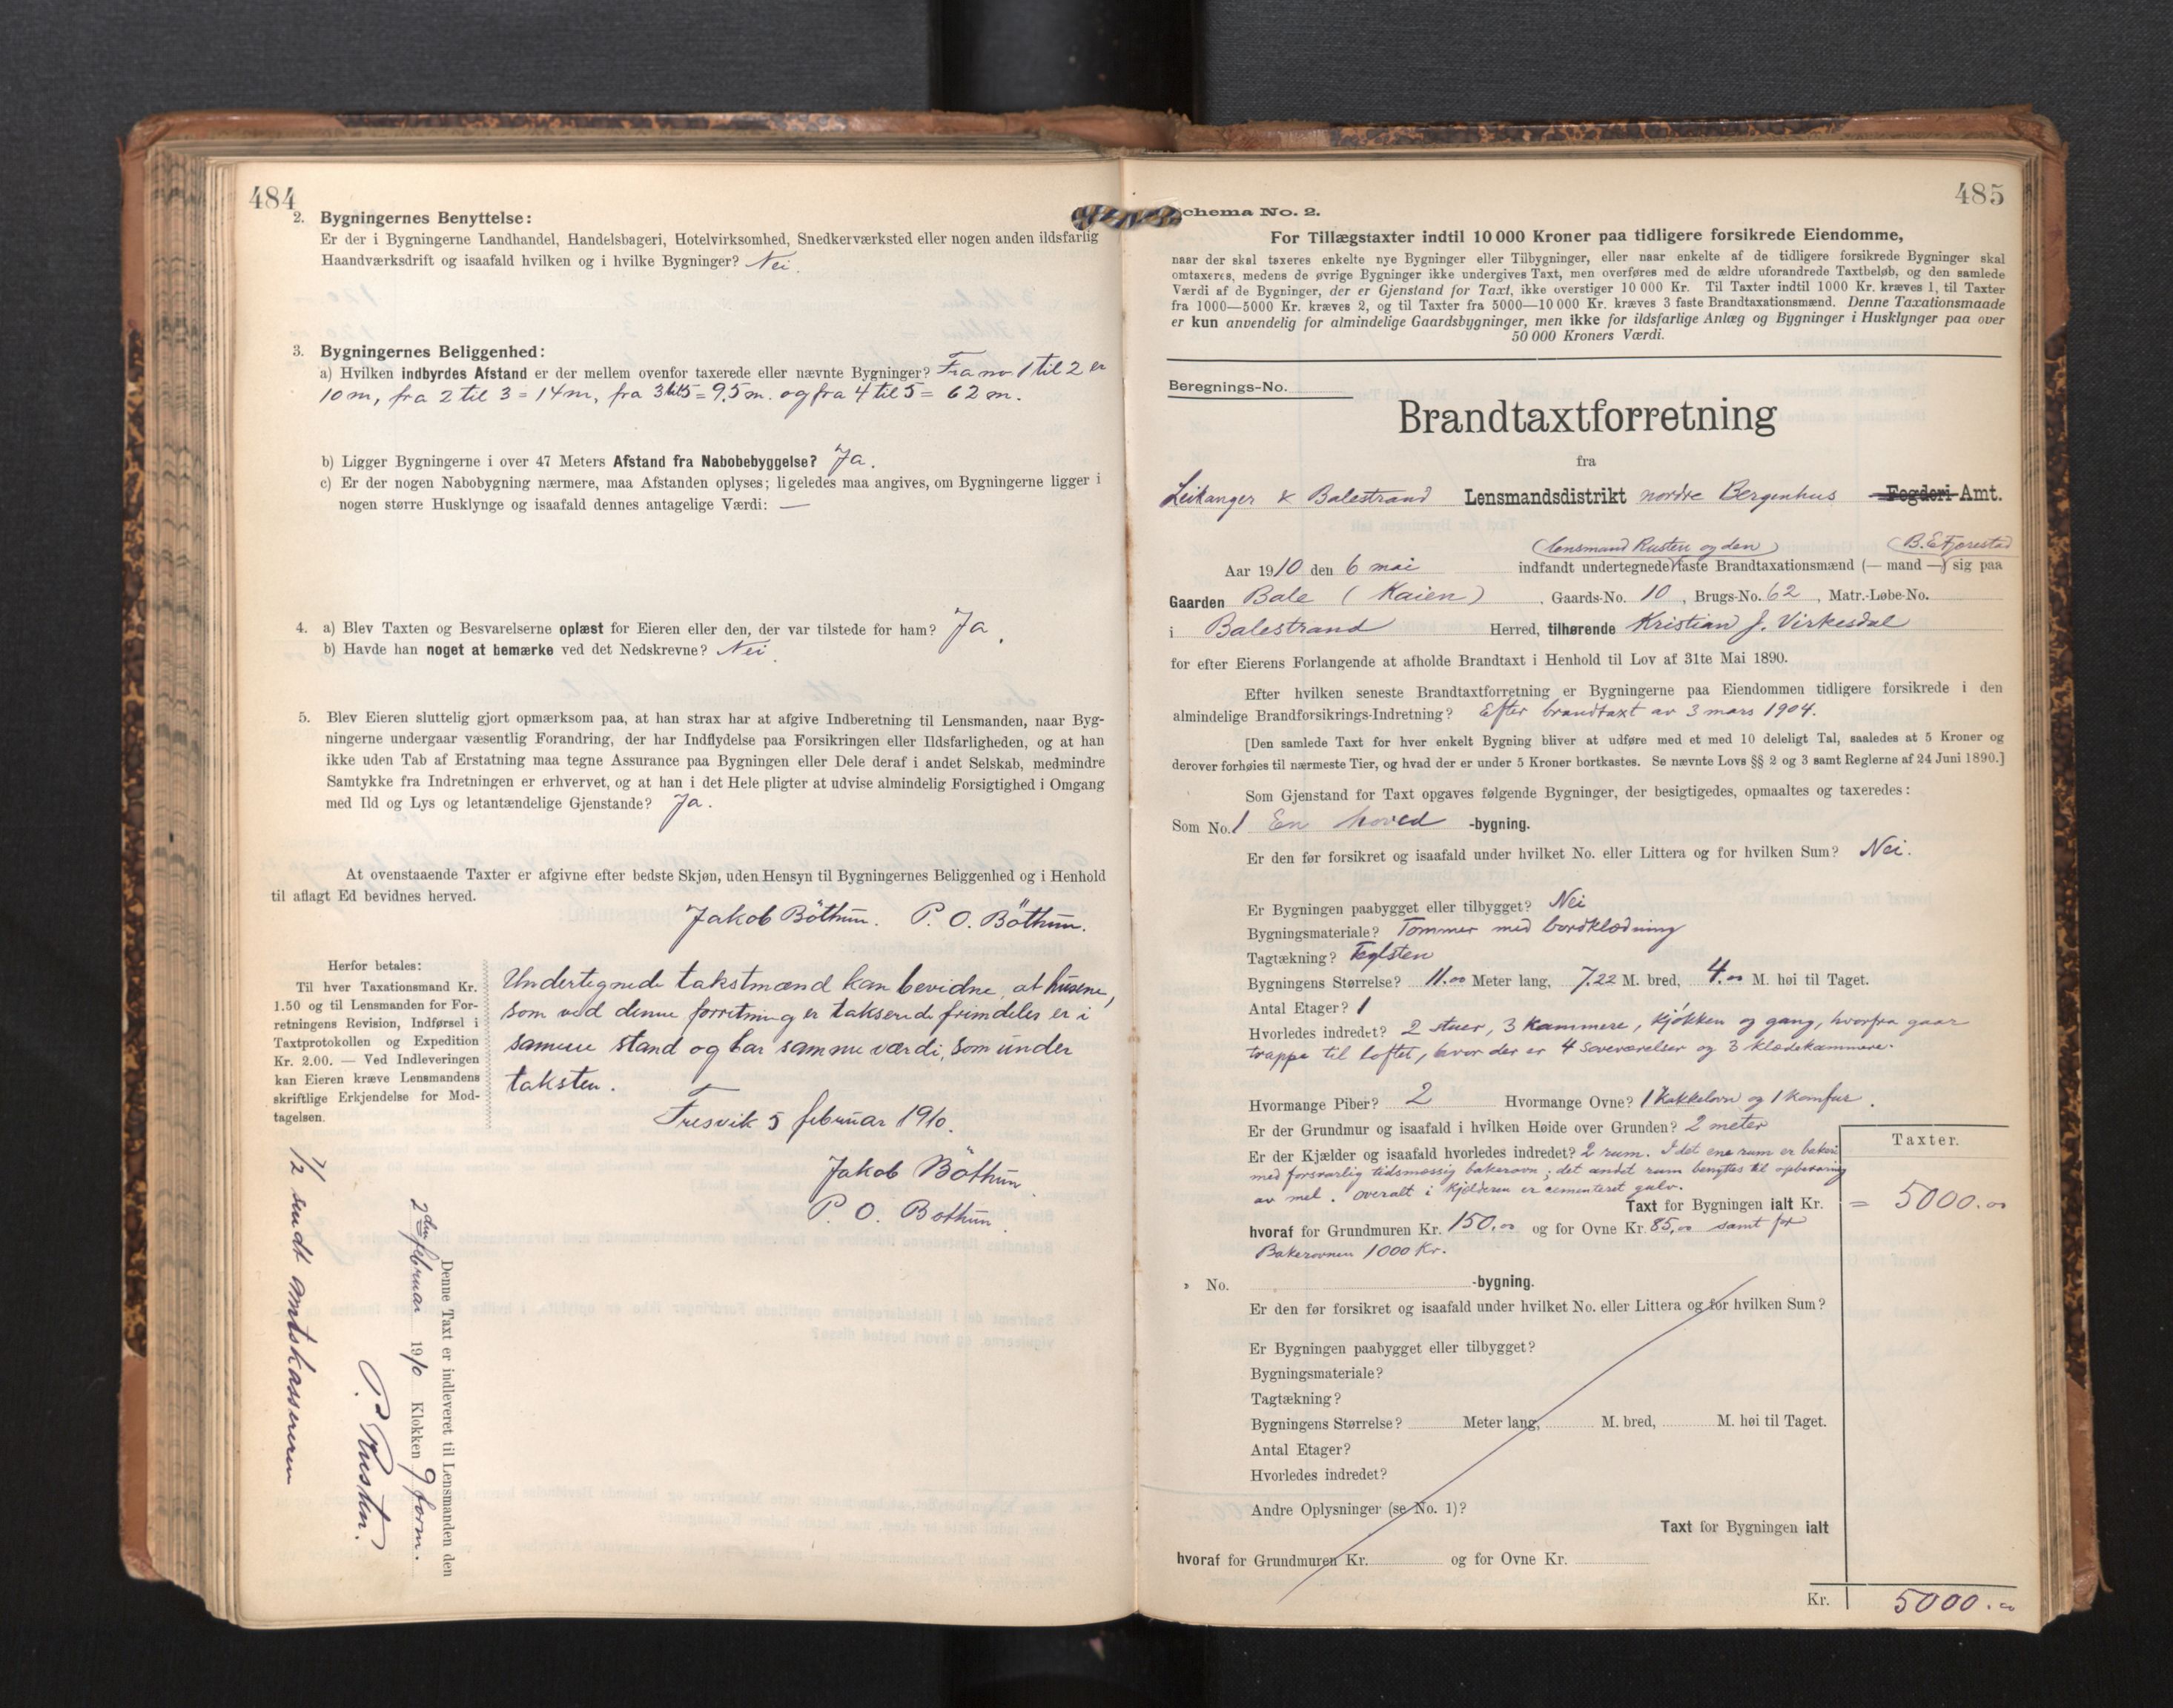 484
2. Bygningernes Benyttelse:
Er der i Bygningerne Landhandel, Handelsbageri, Hotelvirksomhed, Snedkerværksted eller nogen anden ildsfarlig
Haandværksdrift og isaafald hvilken og i hvilke Bygninger? Nei.
3. Bygningernes Beliggenhed:
a) Hvilken indbyrdes Afstand er der mellem ovenfor taxerede eller nævnte Bygninger? Fra no. 1 til 2 er
10 m, fra 2 til 3 = 14 m, fra 3 til 5 = 9,5 m. og fra 4 til 5 = 62 m.
b) Ligger Bygningerne i over 47 Meters Afstand fra Nabobebyggelse? Ja.
c) Er der nogen Nabobygning nærmere, maa Afstanden oplyses; ligeledes maa angives, om Bygningerne ligger i
nogen større Husklynge og isaafald dennes antagelige Værdi: —
4. a) Blev Taxten og Besvarelserne oplæst for Eieren eller den, der var tilstede for ham? Ja.
b) Havde han noget at bemærke ved det Nedskrevne? Nei.
5. Blev Eieren sluttelig gjort opmærksom paa, at han strax har at afgive Indberetning til Lensmanden, naar Byg-
ningerne undergaar væsentlig Forandring, der har Indflydelse paa Forsikringen eller Ildsfarligheden, og at han
ikke uden Tab af Erstatning maa tegne Assurance paa Bygningen eller Dele deraf i andet Selskab, medmindre
Samtykke fra Indretningen er erhvervet, og at han i det Hele pligter at udvise almindelig Forsigtighed i Omgang
med Ild og Lys og letantændelige Gjenstande? Ja.
At ovenstaaende Taxter er afgivne efter bedste Skjøn, uden Hensyn til Bygningernes Beliggenhed og i Henhold
til aflagt Ed bevidnes herved.
Jakob Böthun. P. O. Böthun.
Herfor betales:
Til hver Taxationsmand Kr.
1.50 og til Lensmanden for For-
retningens Revision, Indførsel i
Taxtprotokollen og Expedition
Kr. 2.00. — Ved Indleveringen
kan Eieren kræve Lensmandens
skriftlige Erkjendelse for Mod-
tagelsen.
Undertegnede takstmænd kan bevidne, at husene,
som ved denne forretning er takserede fremdeles er i
samme stand og har samme værdi, som under
taksten.
Fresvik 5 februar 1910.
Jakob Böthun
P. O. Bothun
Denne Taxt er indleveret til Lensmanden den
2den februar 1910 Klokken 9 form.
P. Rusten.
7/2 sendt amtskassereren
485
Schema No. 2.
For Tillægstaxter indtil 10 000 Kroner paa tidligere forsikrede Eiendomme,
naar der skal taxeres enkelte nye Bygninger eller Tilbygninger, eller naar enkelte af de tidligere forsikrede Bygninger skal
omtaxeres, medens de øvrige Bygninger ikke undergives Taxt, men overføres med de ældre uforandrede Taxtbeløb, og den samlede
Værdi af de Bygninger, der er Gjenstand for Taxt, ikke overstiger 10 000 Kr. Til Taxter indtil 1000 Kr. kræves 1, til Taxter
fra 1000—5000 Kr. kræves 2, og til Taxter fra 5000—10 000 Kr. kræves 3 faste Brandtaxationsmænd. Denne Taxationsmaade
er kun anvendelig for almindelige Gaardsbygninger, men ikke for ildsfarlige Anlæg og Bygninger i Husklynger paa over
50 000 Kroners Værdi.
Beregnings-No.
Brandtaxtforretning
fra
Leikanger & Balestrand Lensmandsdistrikt nordre Bergenhus Fogderi Amt.
(lensmand Rusten og den) (B. E. Fjørestad
Aar 1910 den 6 mai indfandt undertegnede faste Brandtaxationsmænd (— mand —) sig paa
Gaarden Bale (Kaien), Gaards-No. 10, Brugs-No. 62, Matr.-Løbe-No.
i Balestrand Herred, tilhørende Kristian J. Virkesdal
for efter Eierens Forlangende at afholde Brandtaxt i Henhold til Lov af 31te Mai 1890.
Efter hvilken seneste Brandtaxtforretning er Bygningerne paa Eiendommen tidligere forsikrede i den
almindelige Brandforsikrings-Indretning? Efter brandtaxt av 3 mars 1904.
[Den samlede Taxt for hver enkelt Bygning bliver at udføre med et med 10 deleligt Tal, saaledes at 5 Kroner og
derover forhøies til nærmeste Tier, og hvad der er under 5 Kroner bortkastes. Se nævnte Lovs §§ 2 og 3 samt Reglerne af 24 Juni 1890.]
Som Gjenstand for Taxt opgaves følgende Bygninger, der besigtigedes, opmaaltes og taxeredes:
Som No. 1 En hoved -bygning.
Er den før forsikret og isaafald under hvilket No. eller Littera og for hvilken Sum? Nei.
Er Bygningen paabygget eller tilbygget? Nei
Bygningsmateriale? Tømmer med bordklædning
Tagtækning? Teglsten
Bygningens Størrelse? 11.00 Meter lang, 7.22 M. bred, 4.00 M. høi til Taget.
Antal Etager? 1
Hvorledes indredet? 2 stuer, 3 kammere, kjøkken og gang, hvorfra gaar
trappe til loftet, hvor der er 4 soveværelser og 3 klædekammere.
Hvormange Piber? 2 Hvormange Ovne? 1 kakkelovn og 1 komfur.
Er der Grundmur og isaafald i hvilken Høide over Grunden? 2 meter
Taxter.
Er der Kjælder og isaafald hvorledes indredet? 2 rum. I det ene rum er bakeri
med forsvarlig tidsmæssig bakerovn; det andet rum benyttes til opbevaring
av mel. Overalt i kjelderen er cementeret gulv.
Taxt for Bygningen ialt Kr. = 5000.00
hvoraf for Grundmuren Kr. 150.00 og for Ovne Kr. 85,00 samt for
Bakerovnen 1000 Kr.
" No. -bygning.
Er den før forsikret og isaafald under hvilket No. eller Littera og for hvilken Sum?
Er Bygningen paabygget eller tilbygget?
Bygningsmateriale?
Tagtækning?
Bygningens Størrelse? Meter lang, M. bred, M. høi til Taget.
Antal Etager?
Hvorledes indredet?
Andre Oplysninger (se No. 1)?
Taxt for Bygningen ialt
hvoraf for Grundmuren Kr. og for Ovne Kr.
Kr. 5000.00